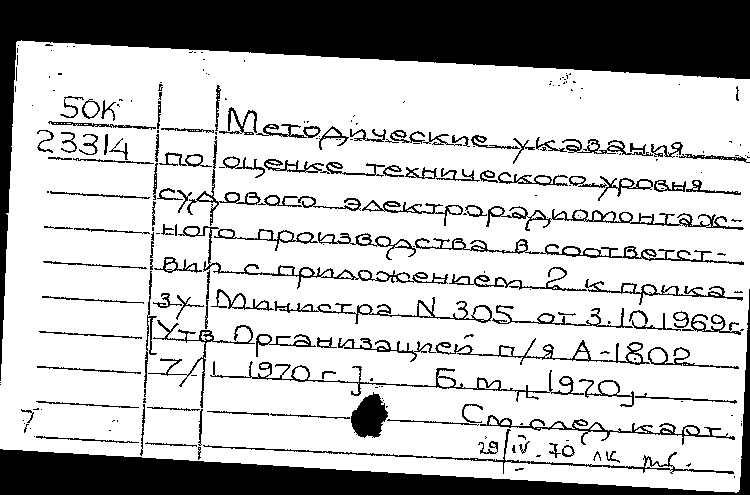 1
50К
Методические указания
23314
по оценке технического уровня
судового электрорадиомонтаж-
ного производства в соответст-
вии с приложением 2 к прика-
зу Министра N 305 от 3.10.1969г.
[Утв Организацией п/я А-1802
7/I 1970 г.]. Б.м., [1970].
См.след.карт.
7
29/IV-70 лк